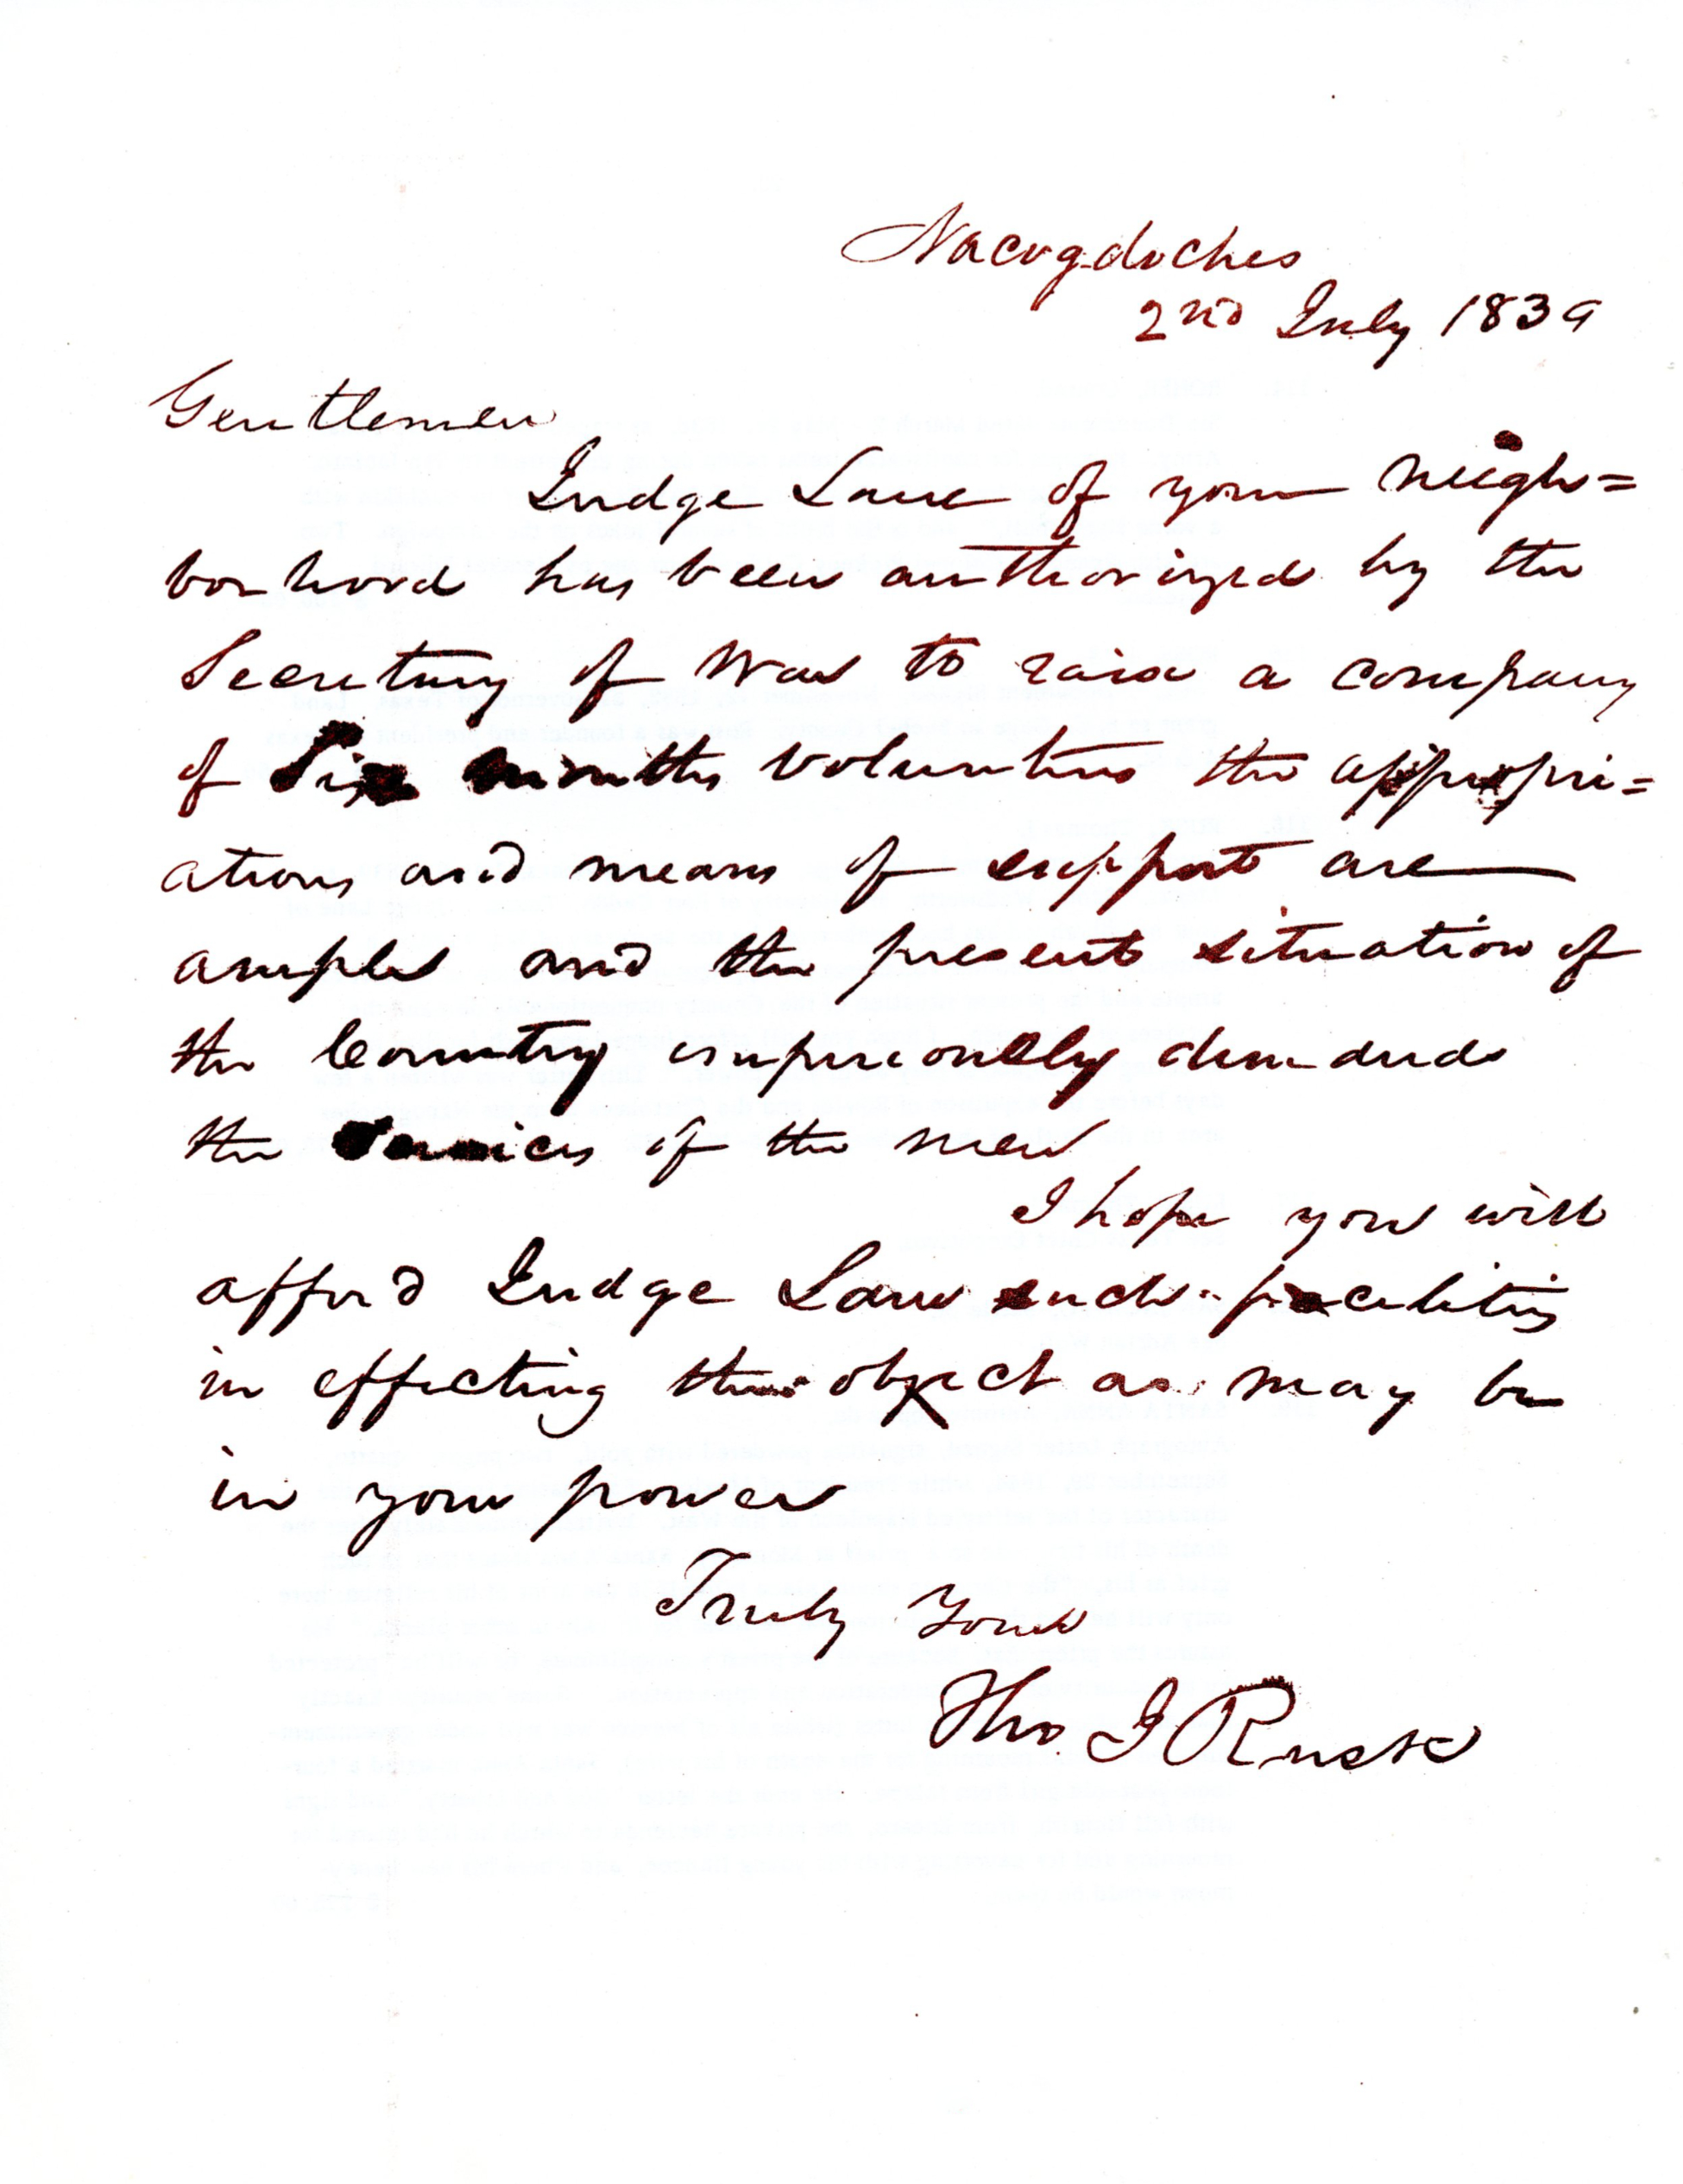 Nacogdoches
2nd July 1839
Gentlemen
Judge Lane of your neigh=
borhood has been authorized by the
Secretary of War to raise a company
of Six months volunteers the appropri=
ations and means of support are
ample and the present situation of
the Country imperiously demands
the services of the men
I hope you will
afford Judge Lane such facilities
in effecting this object as may be
in your power
Truly Yours
Tho. J Rusk